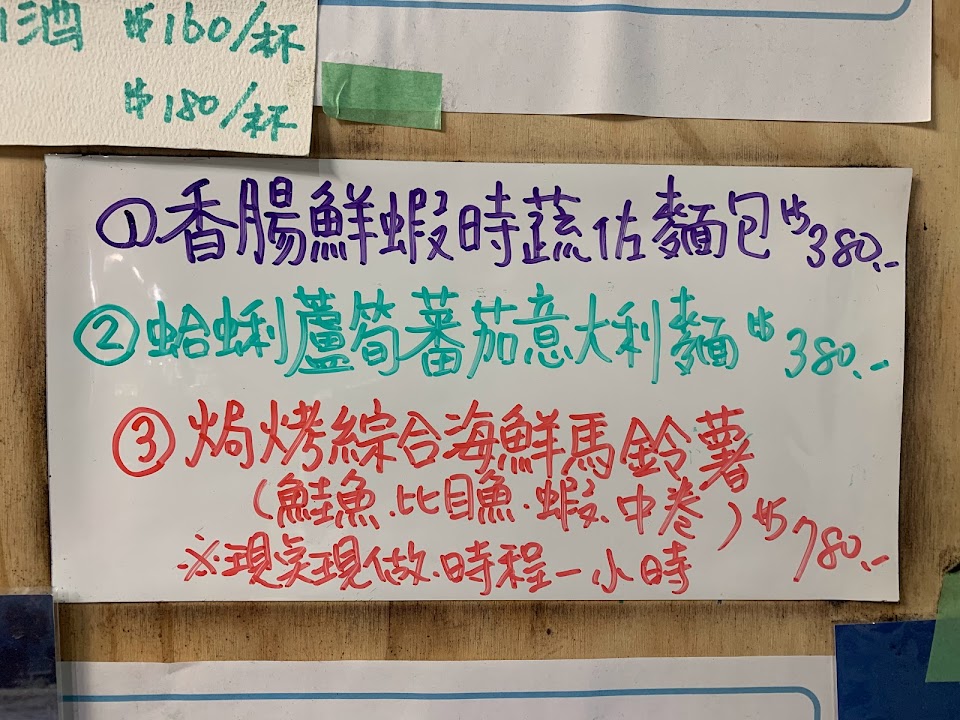 酒 $160/杯
$180/杯
①香腸鮮蝦時蔬佐麵包 $380.-
②蛤蜊蘆筍蕃茄意大利麵 $380.-
③焗烤綜合海鮮馬鈴薯
(鮭魚.比目魚.蝦.中卷) $780.-
※現点現做.時程一小時